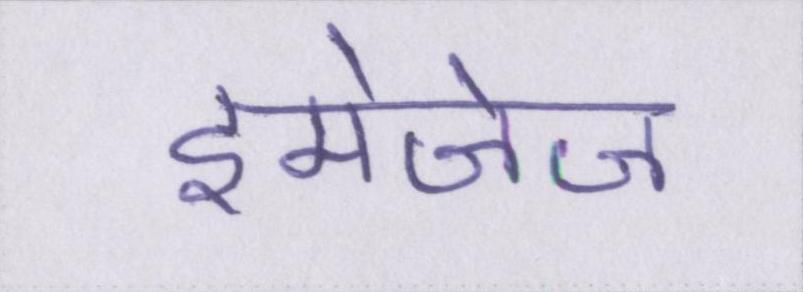 इमेजेज